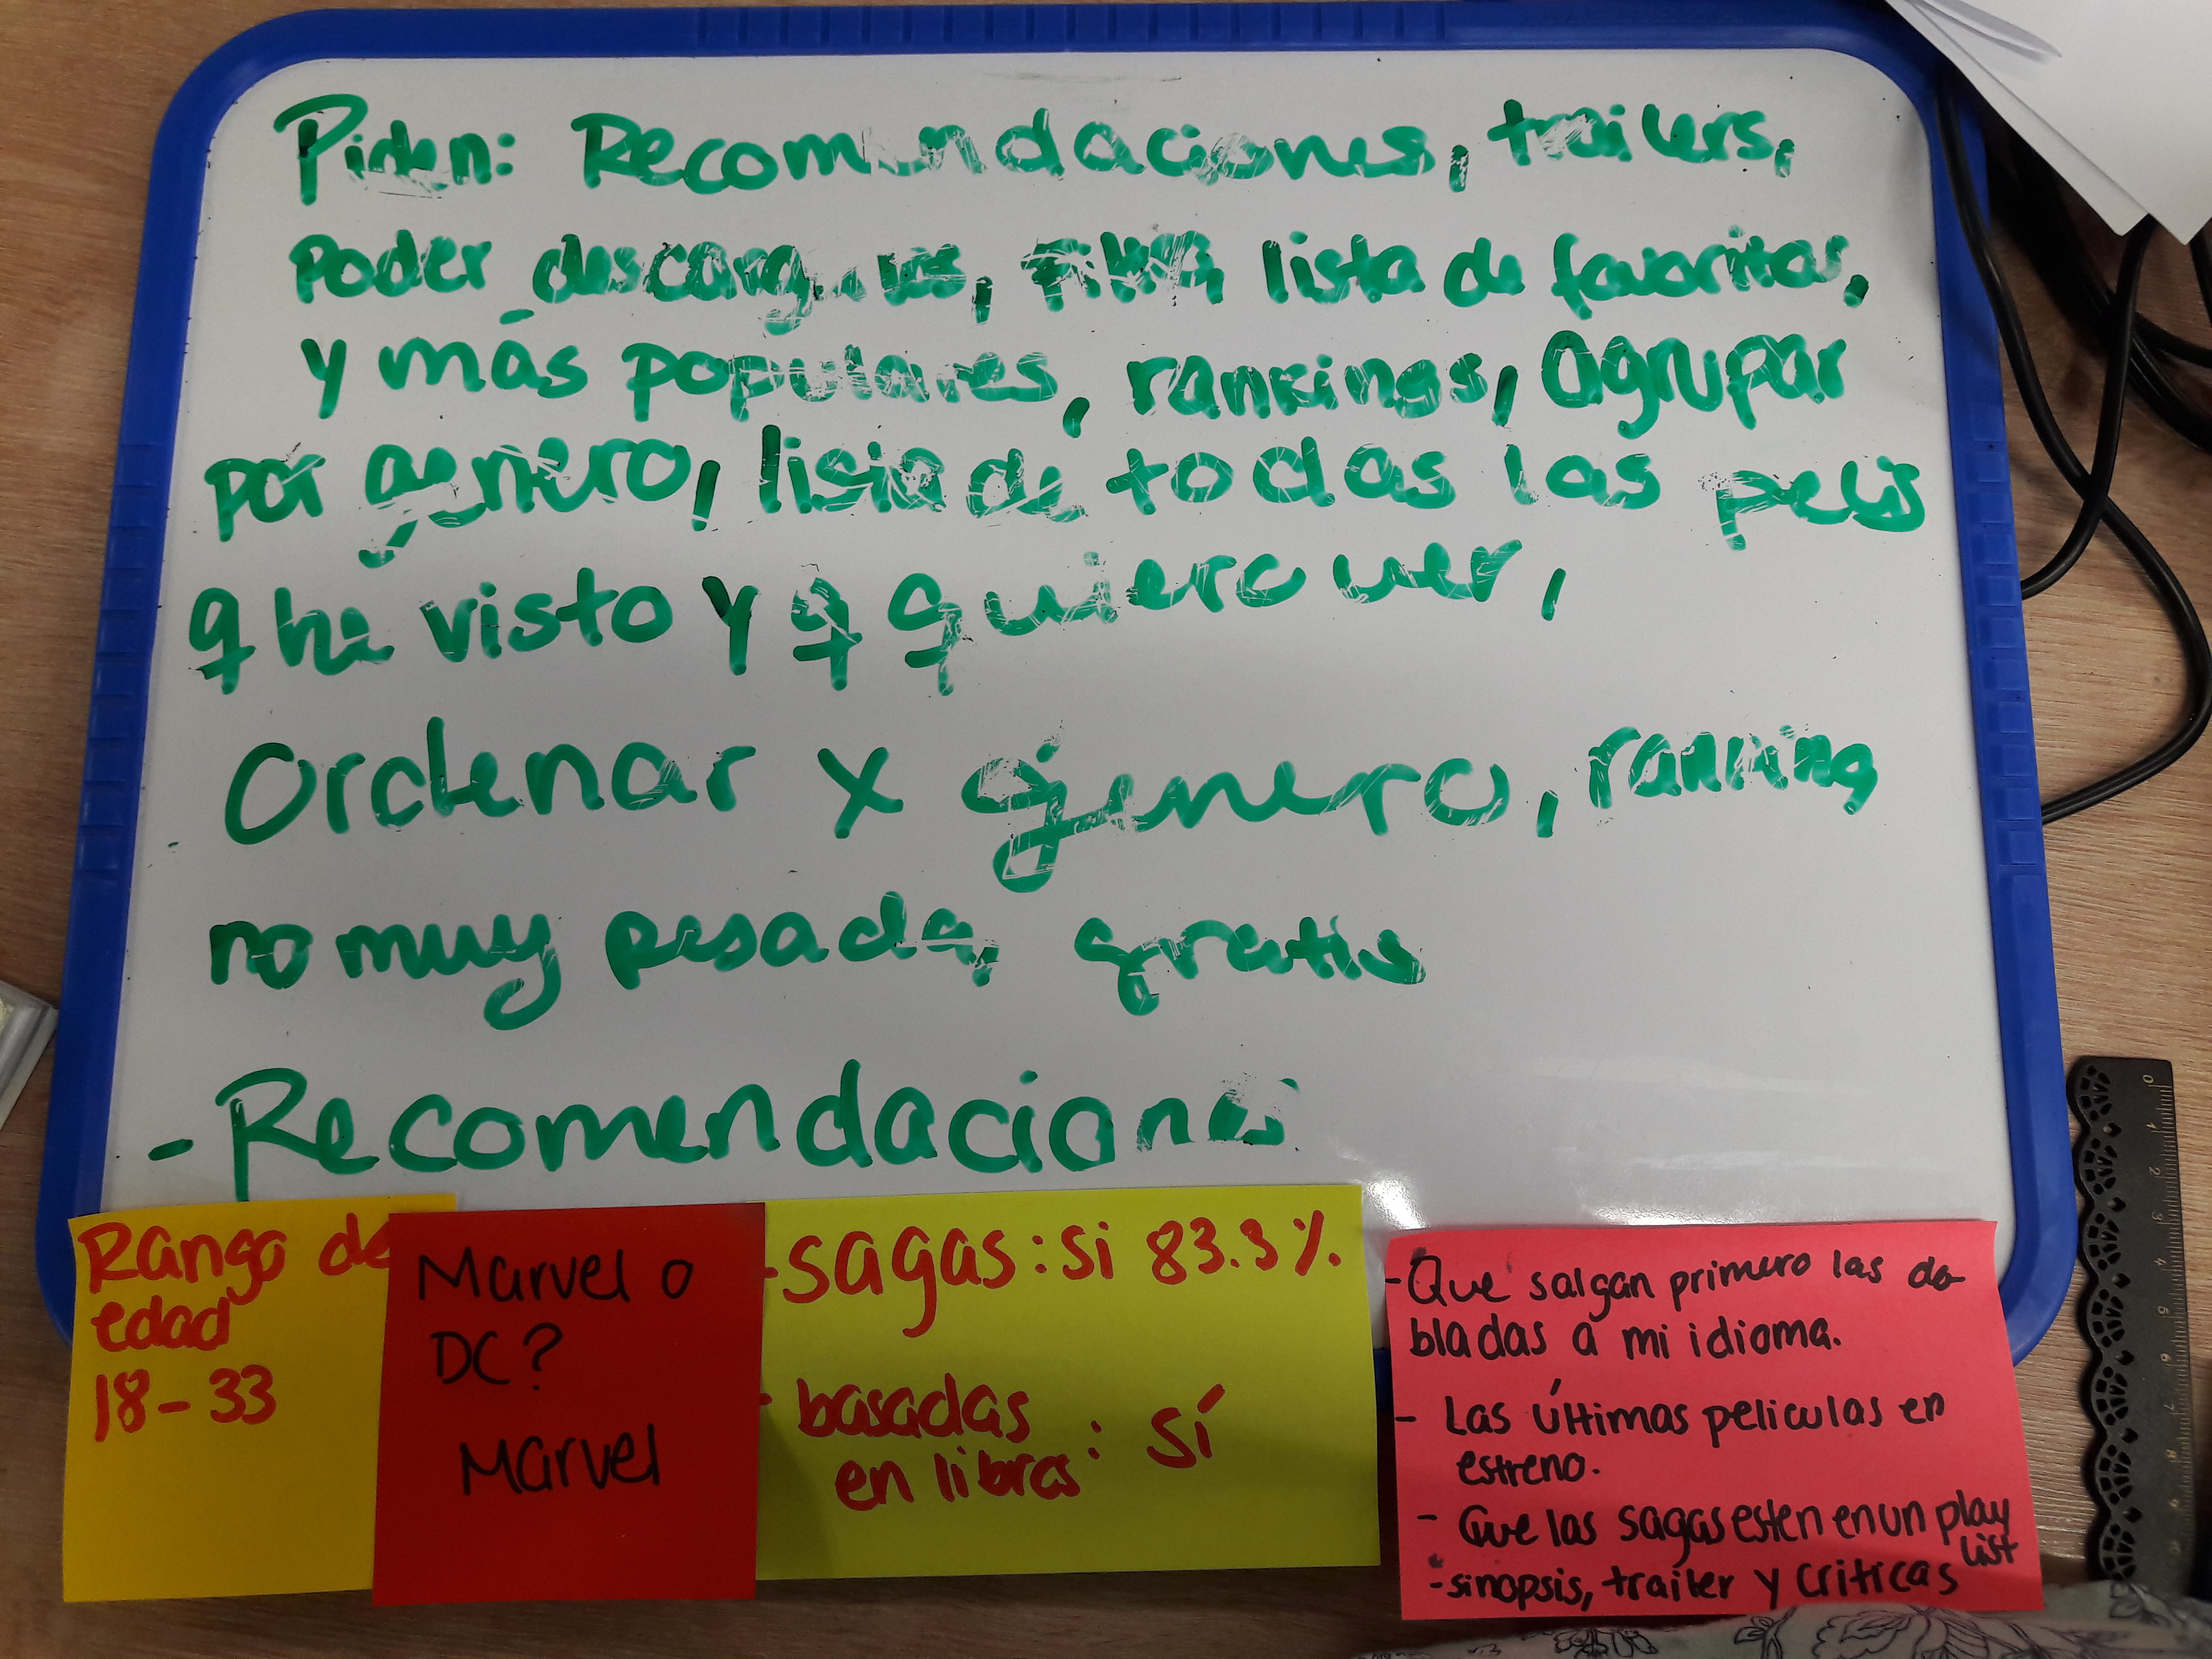 Piden: Recomendaciones, trailers,
poder descargarlas, lista de favoritos,
y mas populares, rankings, agrupar
por genero, lista de todas las pelis
q he visto y q quiero ver,
Ordenar x género, ranking
no muy pesada, gratis
- Recomendacione
Rango de
edad
18-33
Marvel o
DC?
Marvel
- Sagas: si 83.3%.
- basadas
en libros: Sí
- Que salgan primero las do-
bladas a mi idioma.
- Las últimas peliculas en
estreno.
- Que las sagas esten en un play
list
- sinopsis, trailer y criticas
0 1 2 3 4 5 6 7 8 9 10